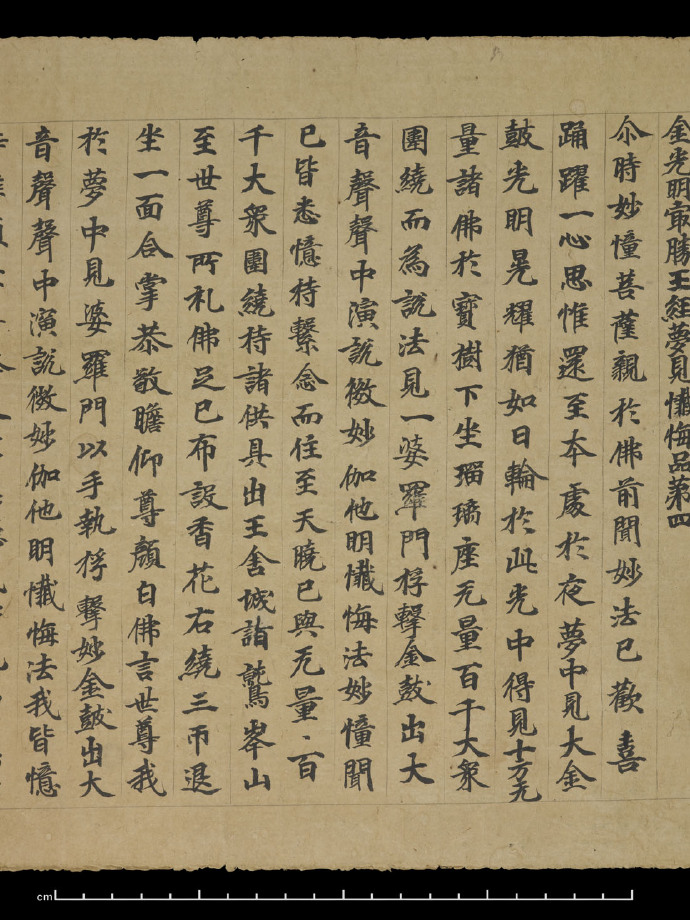 金光明㝡勝王經夢見懺悔品第四
尒時妙憧菩薩親扵佛前聞妙法已歡喜
踊躍一心思惟還至本處扵夜夢中見大金
皷光明晃耀猶如日輪扵此光中得見十方无
量諸佛扵寶樹下坐瑠璃座无量百千大衆
圍繞而為說法見一婆羅門桴擊金皷出大
音聲聲中演說微妙伽他明懺悔法妙憧聞
已皆悉憶持繫念而住至天曉已與无量百
千大衆圍繞持諸供具出王舍城詣鷲峯山
至世尊所礼佛足已布設香花右繞三帀退
坐一面合掌恭敬瞻仰尊顏白佛言世尊我
扵夢中見婆羅門以手執桴擊妙金皷出大
音聲聲中演說微妙伽他明懺悔法我皆憶
cm